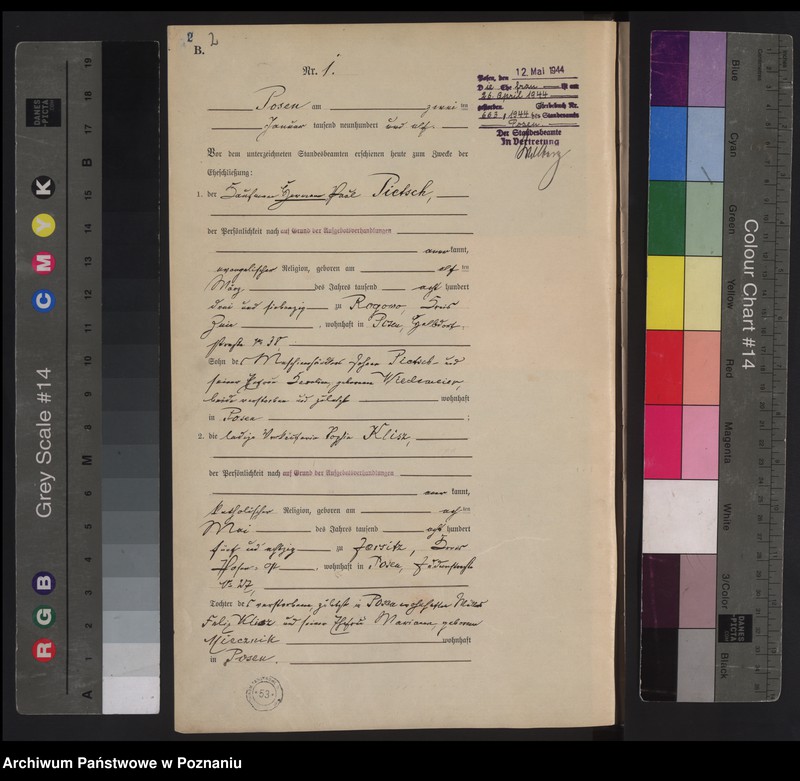 2
B.
Nr. 1.
Posen am zwei ten
Januar tausend neunhundert und elf.
Vor dem unterzeichneten Standesbeamten erschienen heute zum Zwecke der
Eheschließung:
1. der Kaufmann Hermann Paul Pietsch,
der Persönlichkeit nach auf Grund der Aufgebotsverhandlungen
anerkannt,
evangelischer Religion, geboren am elf ten
März des Jahres tausend acht hundert
drei und siebenzig zu Rogowo, Kreis
Znin, wohnhaft in Posen,
straße No 38
Sohn des Johann Pietsch und
seiner Ehefrau geborenen Wiedemeier,
beide verstorben und zuletzt wohnhaft
in Posen ;
2. die ledige Verkäuferin Sophie Klisz,
der Persönlichkeit nach auf Grund der Aufgebotsverhandlungen
anerkannt,
katholischer Religion, geboren am ten
Mai des Jahres tausend acht hundert
fünf und achtzig zu Jersitz, Kreis
Posen, wohnhaft in Posen,
No 27,
Tochter des verstorbenen, zuletzt in Posen wohnhaften
Felix Klisz und seiner Ehefrau Mariana, geborenen
Miecznik wohnhaft
in Posen.
53
Posen, den 12. Mai 1944
Die Ehefrau ist am
26. April 1944
gestorben. Sterbebuch Nr.
663/1944 des Standesamts
Posen
Der Standesbeamte
In Vertretung
Grey Scale #14
DANES
PICTA
R G B C M Y K
A 1 2 3 4 5 6 M 8 9 10 11 12 13 14 15 B 17 18 19
Colour Chart #14
Blue
Cyan
Green
Yellow
Red
Magenta
White
3/Color
Black
DANES
PICTA
Archiwum Państwowe w Poznaniu